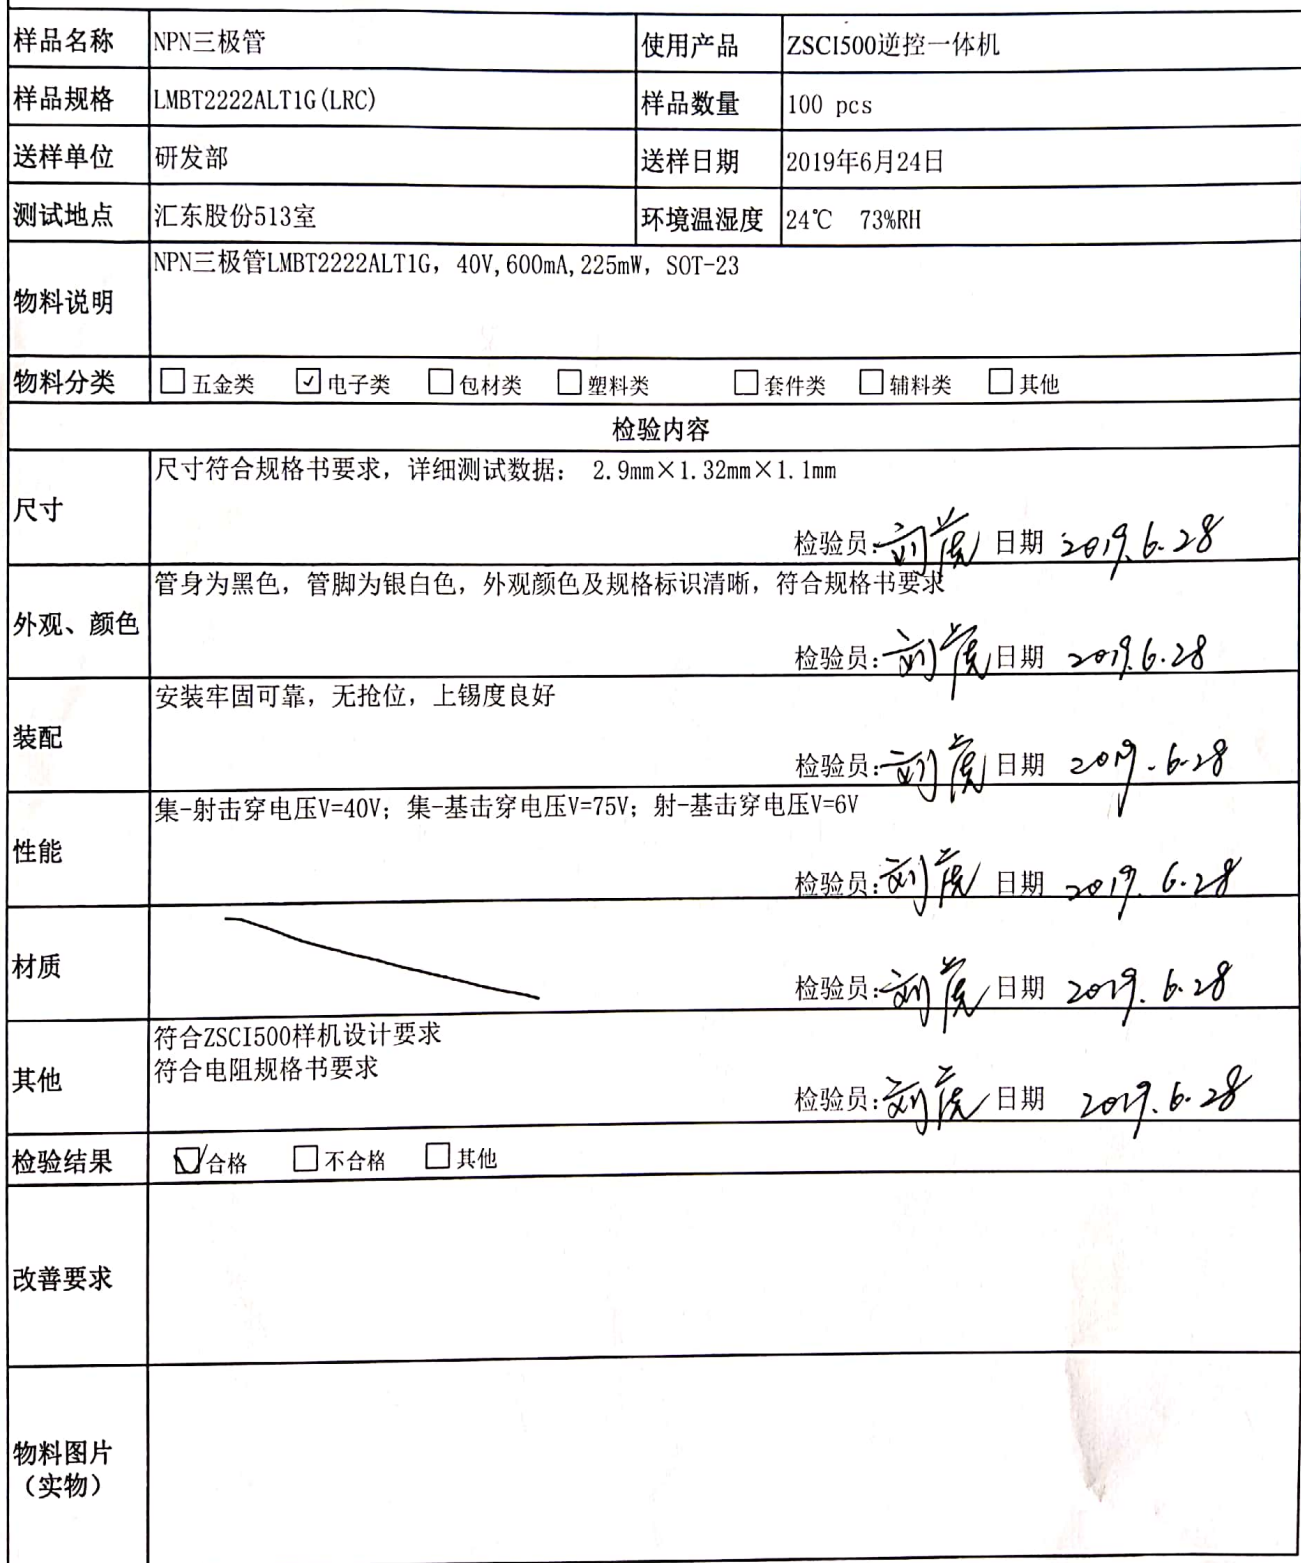 样品名称 NPN三极管 使用产品 ZSCI500逆控一体机
样品规格 LMBT2222ALT1G(LRC) 样品数量 100 pcs
送样单位 研发部 送样日期 2019年6月24日
测试地点 汇东股份513室 环境温湿度 24℃ 73%RH
物料说明 NPN三极管LMBT2222ALT1G，40V,600mA,225mW，SOT-23
物料分类 □五金类 ☑电子类 □包材类 □塑料类 □套件类 □辅料类 □其他
检验内容
尺寸 尺寸符合规格书要求，详细测试数据： 2.9mm×1.32mm×1.1mm
检验员: 日期 2019.6.28
外观、颜色 管身为黑色，管脚为银白色，外观颜色及规格标识清晰，符合规格书要求
检验员: 日期 2019.6.28
装配 安装牢固可靠，无抢位，上锡度良好
检验员: 日期 2019.6.28
性能 集-射击穿电压V=40V；集-基击穿电压V=75V；射-基击穿电压V=6V
检验员: 日期 2019.6.28
材质
检验员: 日期 2019.6.28
其他 符合ZSCI500样机设计要求
符合电阻规格书要求
检验员: 日期 2019.6.28
检验结果 ☑合格 □不合格 □其他
改善要求
物料图片
（实物）